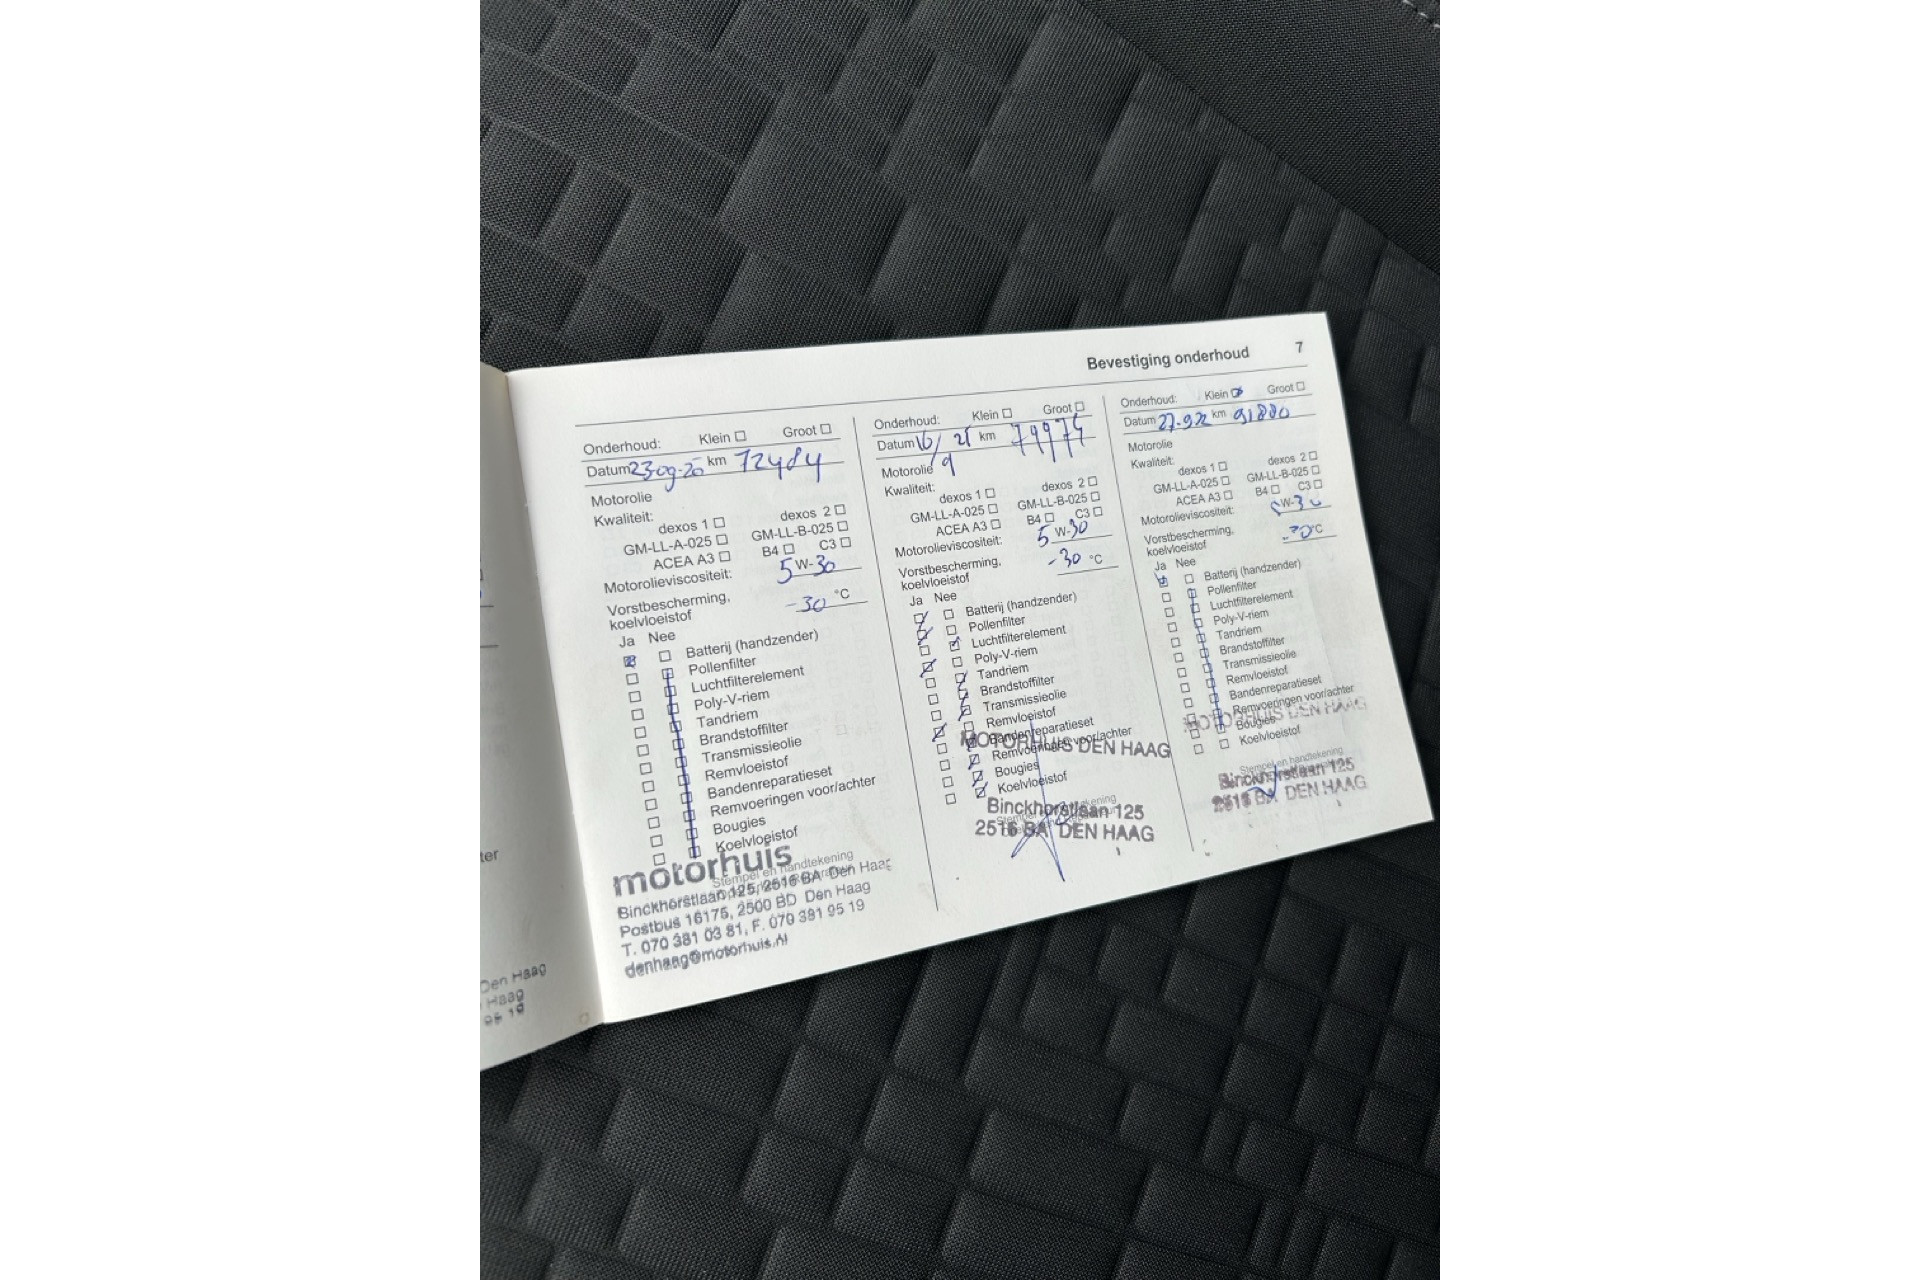 Bevestiging onderhoud 7
Onderhoud: Klein Groot
Datum 23-09-20 km 72484
Motorolie
Kwaliteit:
dexos 1 dexos 2
GM-LL-A-025 GM-LL-B-025
ACEA A3 B4 C3
Motorolieviscositeit: 5 W-30
Vorstbescherming,
koelvloeistof -30 °C
Ja Nee
Batterij (handzender)
Pollenfilter
Luchtfilterelement
Poly-V-riem
Tandriem
Brandstoffilter
Transmissieolie
Remvloeistof
Bandenreparatieset
Remvoeringen voor/achter
Bougies
Koelvloeistof
Stempel en handtekening
motorhuis
Binckhorstlaan 125, 2516 BA Den Haag
Postbus 16175, 2500 BD Den Haag
T. 070 381 03 81, F. 070 381 95 19
denhaag@motorhuis.nl
Onderhoud: Klein Groot
Datum 16/9 21 km 79974
Motorolie
Kwaliteit:
dexos 1 dexos 2
GM-LL-A-025 GM-LL-B-025
ACEA A3 B4 C3
Motorolieviscositeit: 5 W-30
Vorstbescherming,
koelvloeistof -30 °C
Ja Nee
Batterij (handzender)
Pollenfilter
Luchtfilterelement
Poly-V-riem
Tandriem
Brandstoffilter
Transmissieolie
Remvloeistof
Bandenreparatieset
Remvoeringen voor/achter
Bougies
Koelvloeistof
MOTORHUIS DEN HAAG
Stempel en handtekening
Binckhorstlaan 125
2516 BA DEN HAAG
Onderhoud: Klein Groot
Datum 27-9 22 km 91880
Motorolie
Kwaliteit:
dexos 1 dexos 2
GM-LL-A-025 GM-LL-B-025
ACEA A3 B4 C3
Motorolieviscositeit: 5 W-30
Vorstbescherming,
koelvloeistof °C
Ja Nee
Batterij (handzender)
Pollenfilter
Luchtfilterelement
Poly-V-riem
Tandriem
Brandstoffilter
Transmissieolie
Remvloeistof
Bandenreparatieset
Remvoeringen voor/achter
Bougies
Koelvloeistof
MOTORHUIS DEN HAAG
Stempel en handtekening
Binckhorstlaan 125
2516 BA DEN HAAG
ter
Den Haag
Haag
95 19